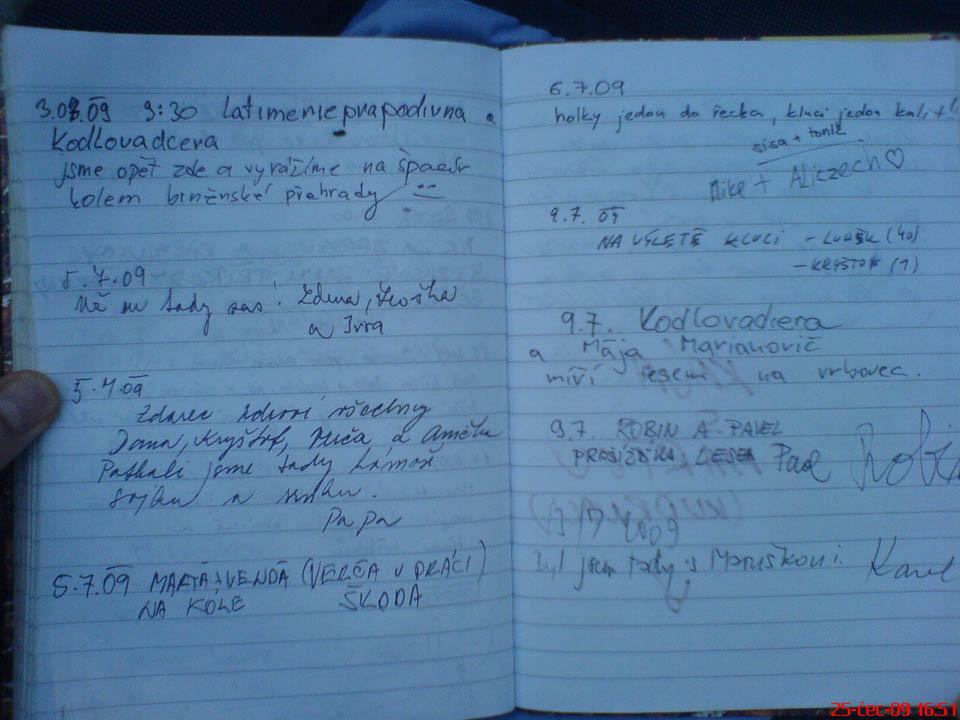 3.07.09 9:30 Latimerie prapodivna a
Kodlovadcera
jsme opět zde a vyrážíme na špacír
kolem brněnské přehrady
5.7.09
tady zas! Zdena,
a Ivra
5.7.09
Zdarec zdraví všechny
Dana, Kryštof, a Anička
Potkali jsme tady
sojku a
Pa pa
5.7.09 MARTA, VENDA (VERČA V PRÁCI)
NA KOLE ŠKODA
6.7.09
holky jedou do řecka, kluci jedou kalit!
sisa + tonik
Mike + Aliczech ♡
9.7. 09
NA VÝLETĚ KLUCI - LUDĚK (40)
- KRYŠTOF (7)
9.7. Kodlovadcera
a Mája Marianovič
míří lesem na vrbovec.
9.7. ROBIN A PAVEL
Pavel Robin
2009
Byl jsem tady s Maruškou. Karel
25-čec-09 16:51